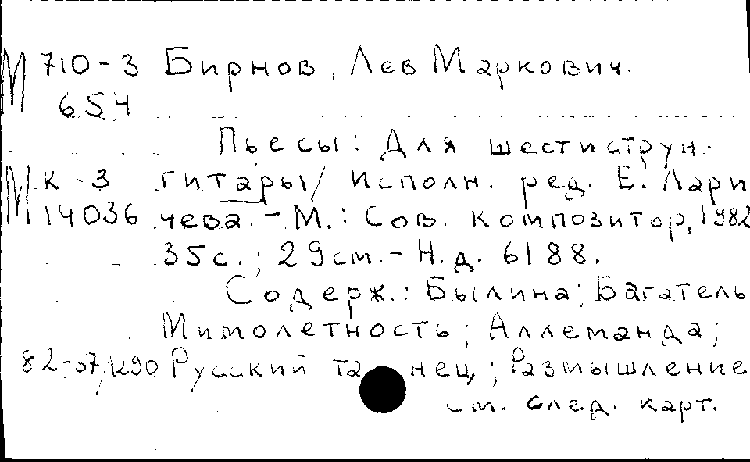 М 710-3 Бирнов, Лев Маркович.
654
Пьесы: Для шестиструн.
М К-3 гитары/ Исполн. ред. Е. Лари
14036 чева. - М.: Сов. композитор, 1982
35с.; 29см. - Н.д. 6188.
Содерж.: Былина; Багатель
Мимолетность; Аллеманда;
82- Русский танец; Размышление
см. след. карт.